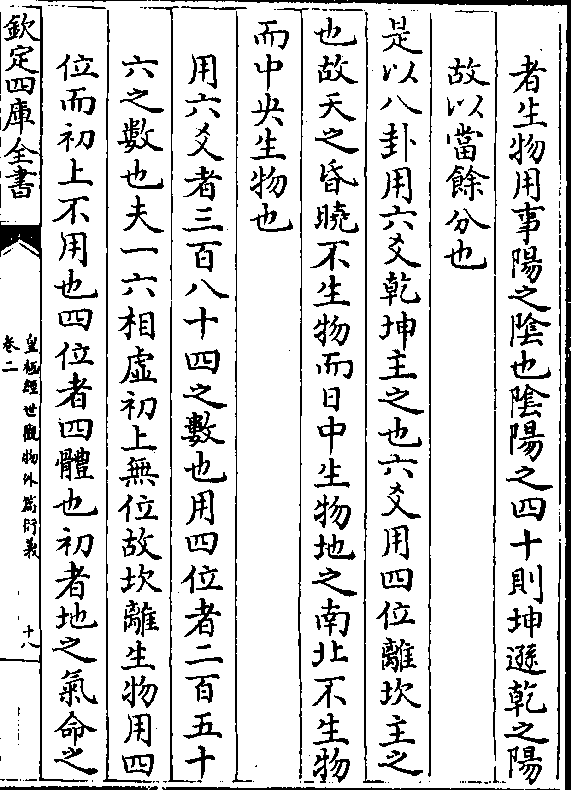 者生物用事陽之陰也陰陽之四十則坤遜乾之陽
故以當餘分也
是以八卦用六爻乾坤主之也六爻用四位離坎主之
也故天之昏曉不生物而日中生物地之南北不生物
而中央生物也
用六爻者三百八十四之數也用四位者二百五十
六之數也夫一六相虛初上無位故坎離生物用四
位而初上不用也四位者四體也初者地之氣命之
欽定四庫全書
皇極經世觀物外篇衍義
卷二
十八